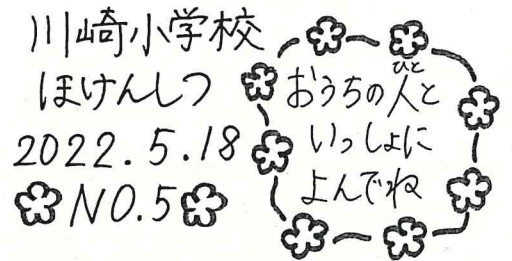 川崎小学校
ほけんしつ
2022.5.18
NO.5
おうちの人と
ひと
いっしょに
よんでね